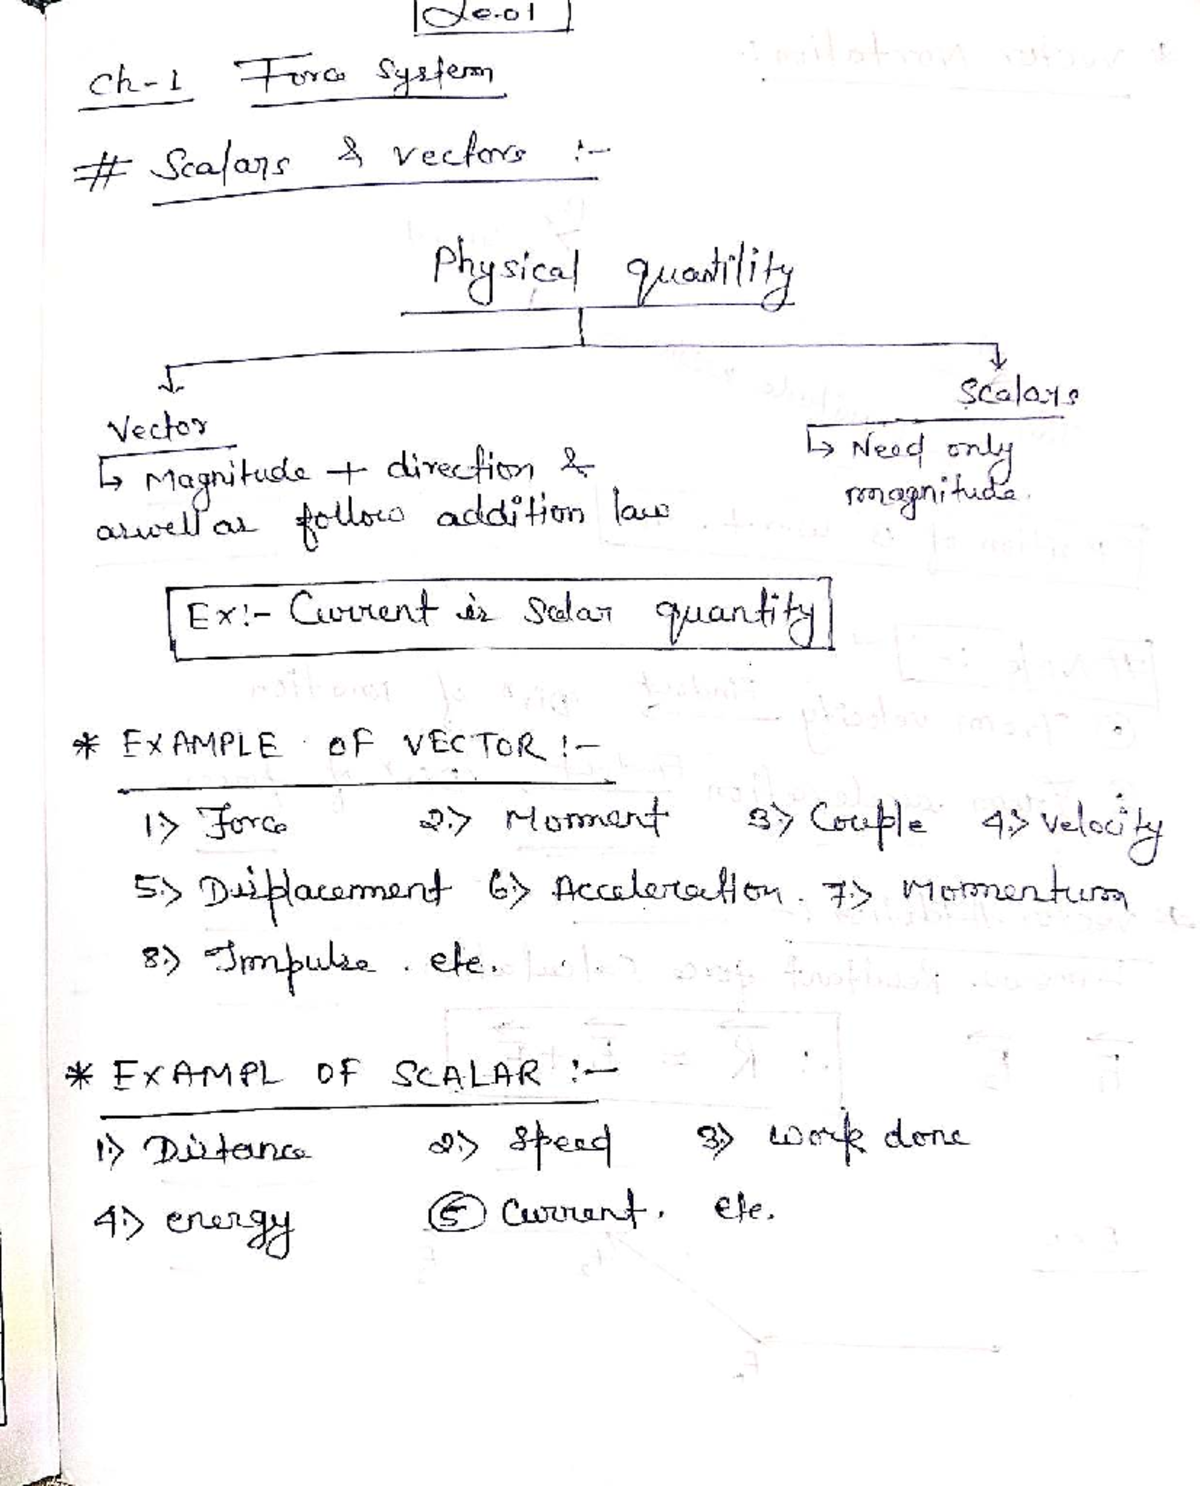 Le-01
Ch-1 Force System
# Scalars & vectors :-
Physical quantility
Vector
Scalars
↳ Magnitude + direction &
aswell as follow addition law
↳ Need only
magnitude.
Ex:- Current is Scalar quantity
* EXAMPLE OF VECTOR :-
1.) Force 2.) Moment 3.) Couple 4.) velocity
5.) Displacement 6.) Acceleration. 7.) Momentum
8.) Impulse . etc.
* EXAMPL OF SCALAR :-
1.) Distance 2.) Speed 3.) work done
4.) energy ⑤ Current. etc.